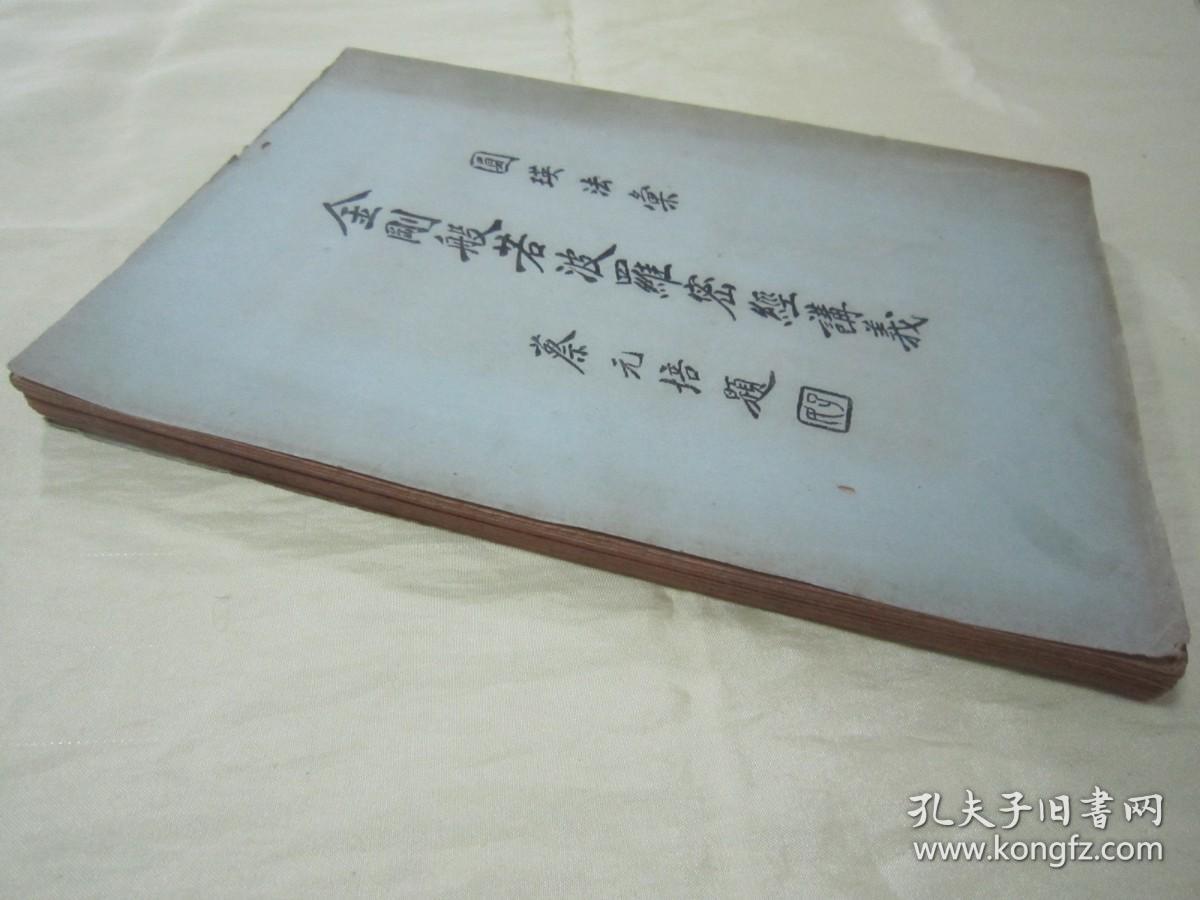 圓瑛法彙
金剛般若波羅密經講義
蔡元培題
孔夫子旧书网
www.kongfz.com